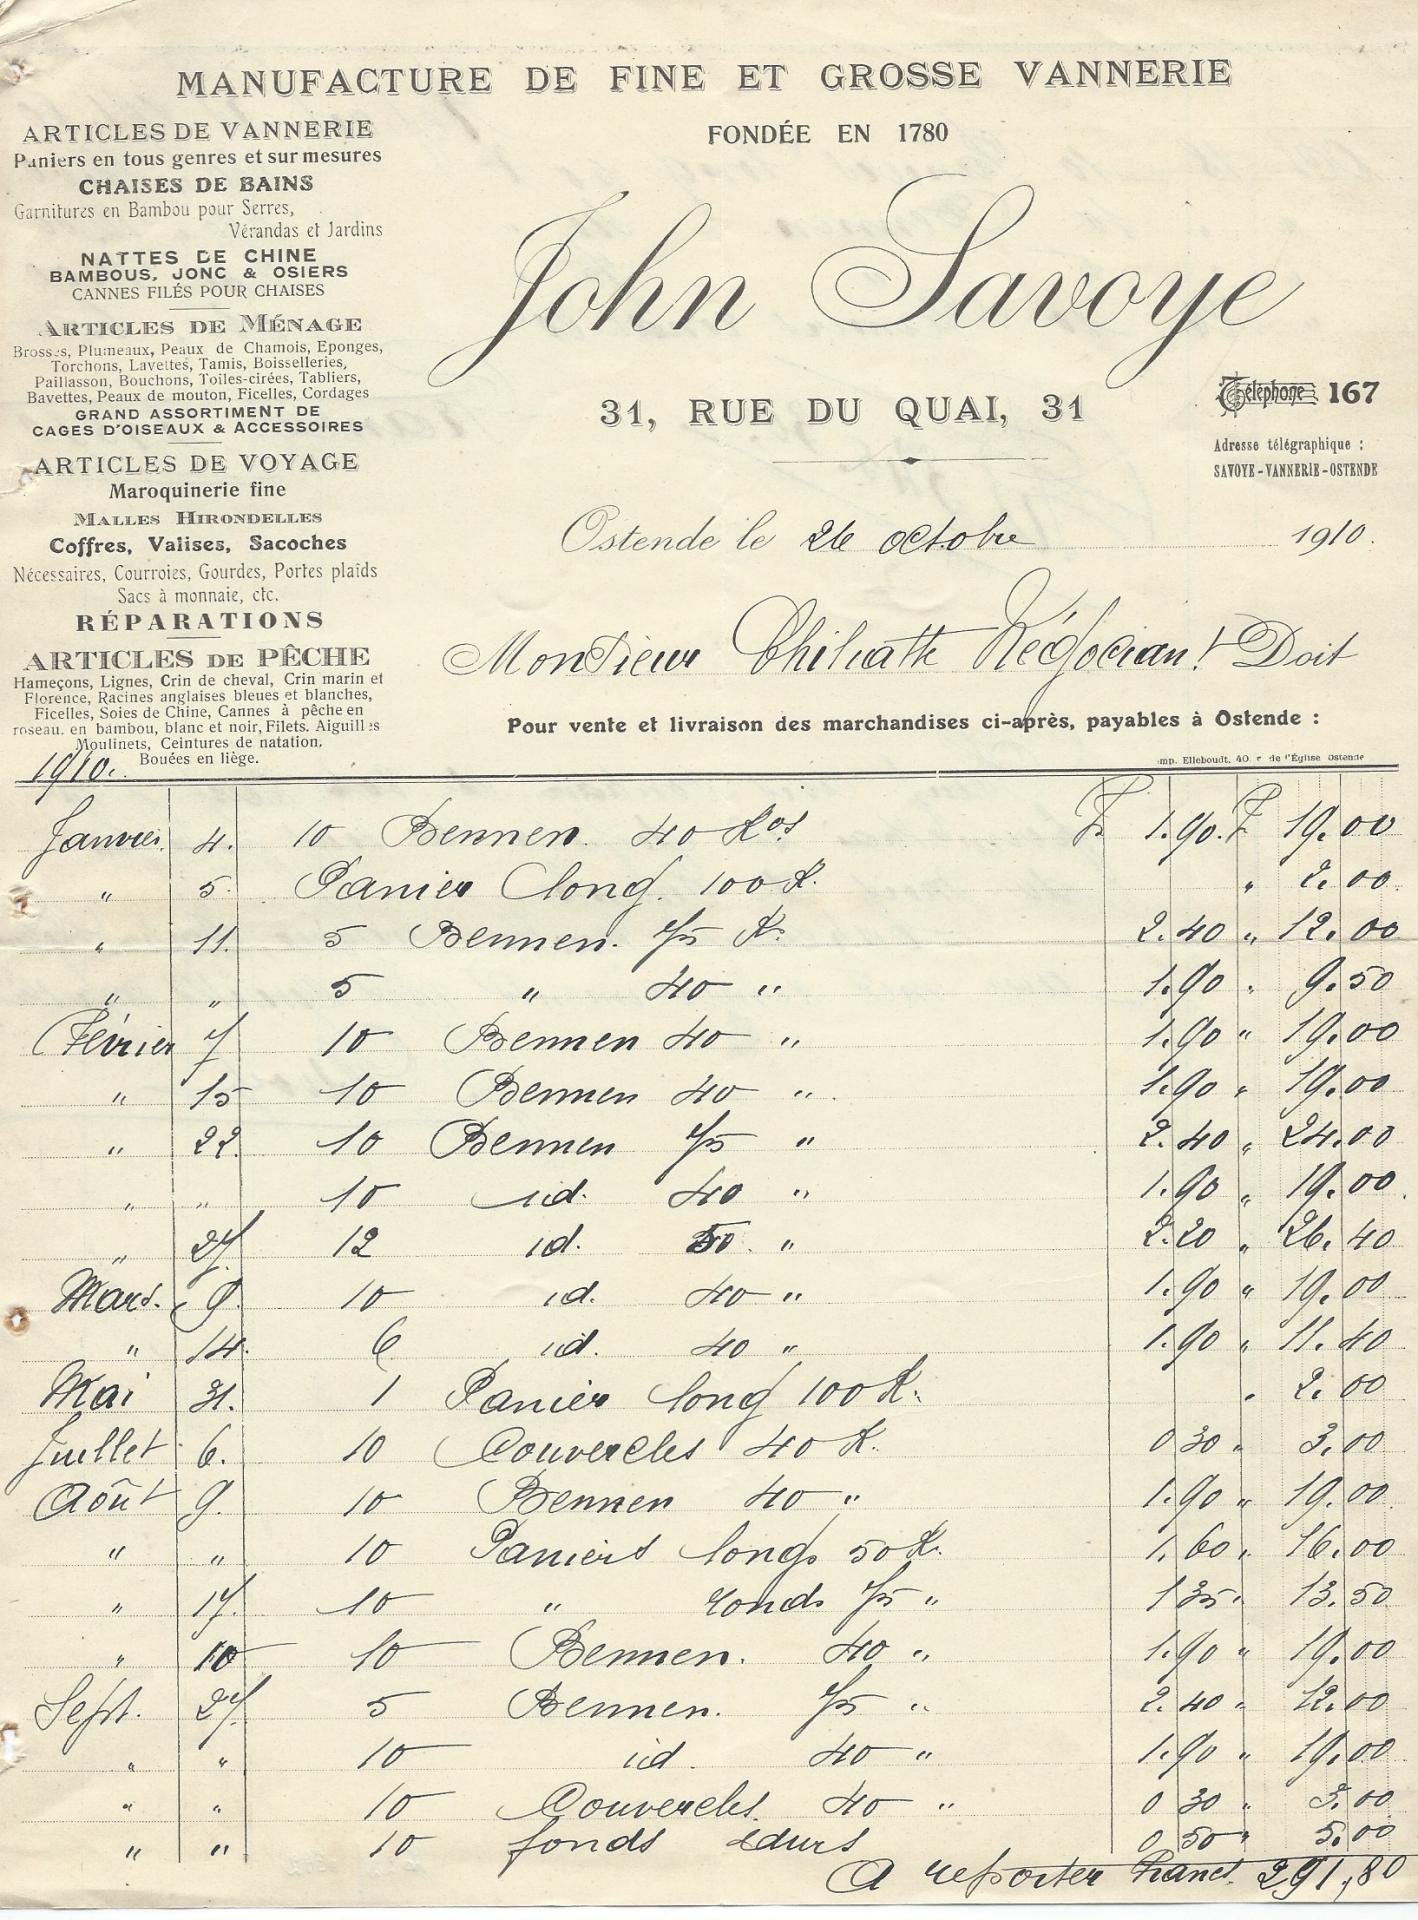 MANUFACTURE DE FINE ET GROSSE VANNERIE
FONDÉE EN 1780
John Savoye
31, RUE DU QUAI, 31
Téléphone 167
Adresse télégraphique :
SAVOYE-VANNERIE-OSTENDE
ARTICLES DE VANNERIE
Paniers en tous genres et sur mesures
CHAISES DE BAINS
Garnitures en Bambou pour Serres,
Vérandas et Jardins
NATTES DE CHINE
BAMBOUS, JONC & OSIERS
CANNES FILÉS POUR CHAISES
ARTICLES DE MÉNAGE
Brosses, Plumeaux, Peaux de Chamois, Eponges,
Torchons, Lavettes, Tamis, Boisselleries,
Paillasson, Bouchons, Toiles-cirées, Tabliers,
Bavettes, Peaux de mouton, Ficelles, Cordages
GRAND ASSORTIMENT DE
CAGES D'OISEAUX & ACCESSOIRES
ARTICLES DE VOYAGE
Maroquinerie fine
MALLES HIRONDELLES
Coffres, Valises, Sacoches
Nécessaires, Courroies, Gourdes, Portes plaids
Sacs à monnaie, etc.
RÉPARATIONS
ARTICLES DE PÊCHE
Hameçons, Lignes, Crin de cheval, Crin marin et
Florence, Racines anglaises bleues et blanches,
Ficelles, Soies de Chine, Cannes à pêche en
roseau, en bambou, blanc et noir, Filets, Aiguilles
Moulinets, Ceintures de natation,
Bouées en liège.
Ostende le 26 octobre 1910.
Monsieur Négociant Doit
Pour vente et livraison des marchandises ci-après, payables à Ostende :
Imp. Elleboudt, 40 r de l'Église Ostende
1910.
Janvier 4. 10 Bennen 40 Kos F. 1.90. F 19.00
" 5. Panier long. 100 K. " 2.00.
" 11. 5 Bennen. 75 K. 2.40 " 12.00
" " 5 " 40 " 1.90 " 9.50
Février 7 10 Bennen 40 " 1.90 " 19.00
" 15 10 Bennen 40 " 1.90 " 19.00
" 22. 10 Bennen 75 " 2.40 " 24.00
" " 10 id. 40 " 1.90 " 19.00
" 27. 12 id. 50. " 2.20 " 26.40
Mars. 9. 10 id. 40 " 1.90 " 19.00
" 14. 6 id. 40 " 1.90 " 11.40
Mai 31. 1 Panier long 100 K. " 2.00
Juillet 6. 10 Couvercles 40 K. 0 30 " 3.00
Août 9. 10 Bennen 40 " 1.90 " 19.00
" " 10 Paniers longs 50 K. 1.60 " 16.00
" 17. 10 " ronds 75 " 1 35 " 13.50
" 10 10 Bennen. 40 " 1.90 " 19.00
Sept. 27. 5 Bennen. 75 " 2.40 " 12.00
" " 10 id. 40 " 1.90 " 19.00
" " 10 Couvercles. 40 " 0 30 " 3.00
" " 10 fonds durs 0 50 " 5.00
A reporter francs. 291,80